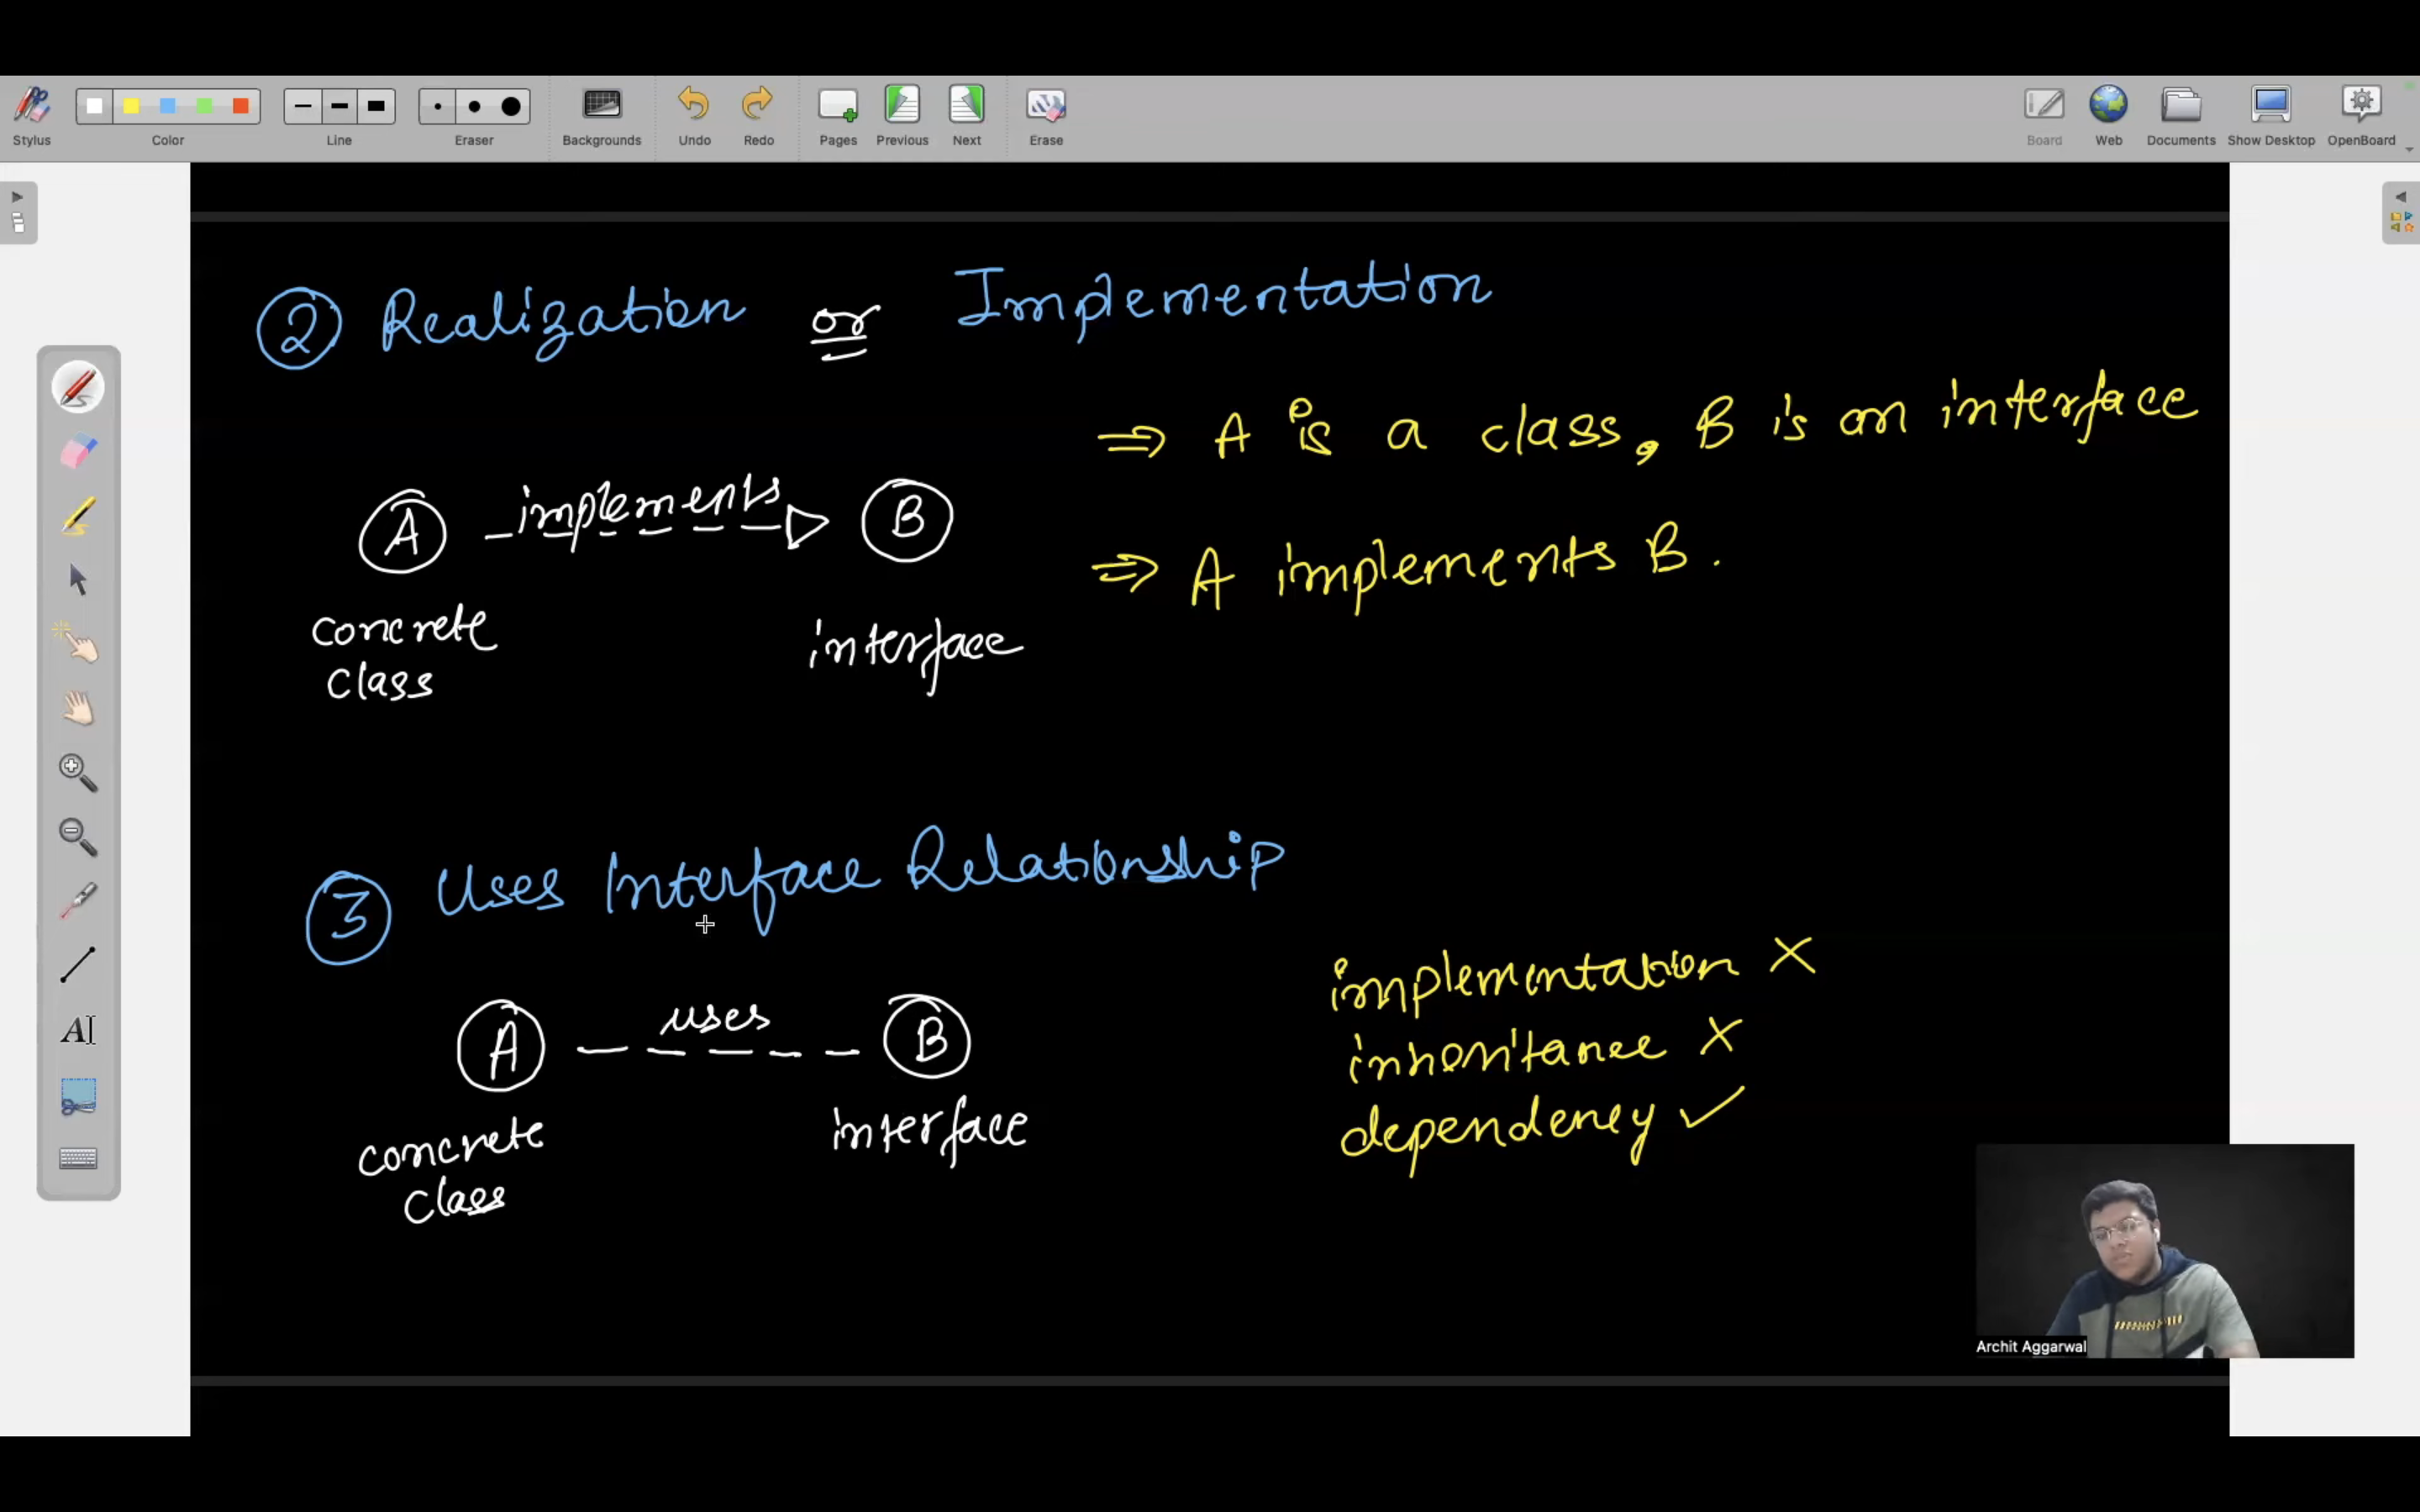 Stylus
Color
Line
Eraser
Backgrounds
Undo
Redo
Pages
Previous
Next
Erase
Board
Web
Documents
Show Desktop
OpenBoard
2 Realization or Implementation
A implements B
concrete class
interface
⇒ A is a class, B is an interface
⇒ A implements B.
3 Uses Interface Relationship
A uses B
concrete class
interface
implementation X
inheritance X
dependency ✓
AI
Archit Aggarwal